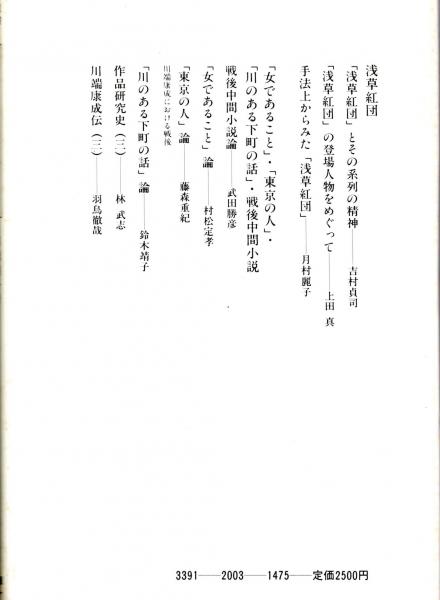 浅草紅団
「浅草紅団」とその系列の精神──吉村貞司
「浅草紅団」の登場人物をめぐって──上田 真
手法上からみた「浅草紅団」──月村麗子
「女であること」・「東京の人」・
「川のある下町の話」・戦後中間小説
戦後中間小説論──武田勝彦
「女であること」論──村松定孝
「東京の人」論──藤森重紀
川端康成における戦後
「川のある下町の話」論──鈴木靖子
作品研究史(三)──林 武志
川端康成伝(三)──羽鳥徹哉
3391──2003──1475──定価2500円